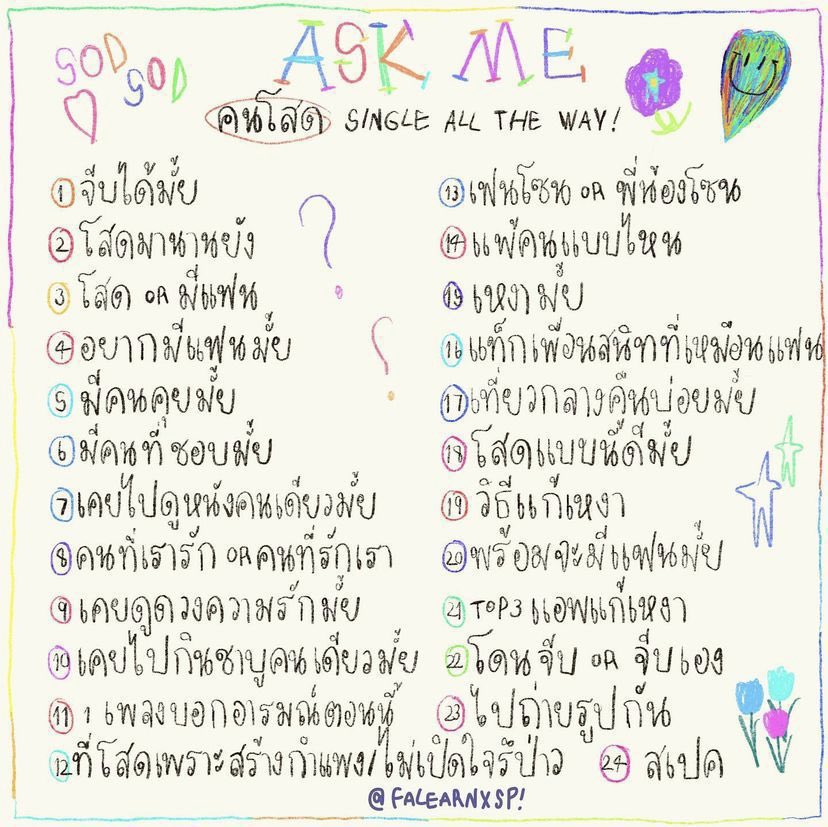 ASK ME
SOD
SOD
คนโสด SINGLE ALL THE WAY!
1 จีบได้มั้ย
2 โสดมานานยัง
3 โสด OR มีแฟน
4 อยากมีแฟนมั้ย
5 มีคนคุยมั้ย
6 มีคนที่ชอบมั้ย
7 เคยไปดูหนังคนเดียวมั้ย
8 คนที่เรารัก OR คนที่รักเรา
9 เคยดูดวงความรักมั้ย
10 เคยไปกินชาบูคนเดียวมั้ย
11 1 เพลงบอกอารมณ์ตอนนี้
12 ที่โสดเพราะสร้างกำแพง/ไม่เปิดใจรึป่าว
13 แฟนโซน OR พี่น้องโซน
14 แพ้คนแบบไหน
15 เหงามั้ย
16 แท็กเพื่อนสนิทที่เหมือนแฟน
17 เที่ยวกลางคืนบ่อยมั้ย
18 โสดแบบนี้ดีมั้ย
19 วิธีแก้เหงา
20 พร้อมจะมีแฟนมั้ย
21 TOP3 แอพแก้เหงา
22 โดนจีบ OR จีบเอง
23 ไปถ่ายรูปกัน
24 สเปค
@FALEARNXSP!